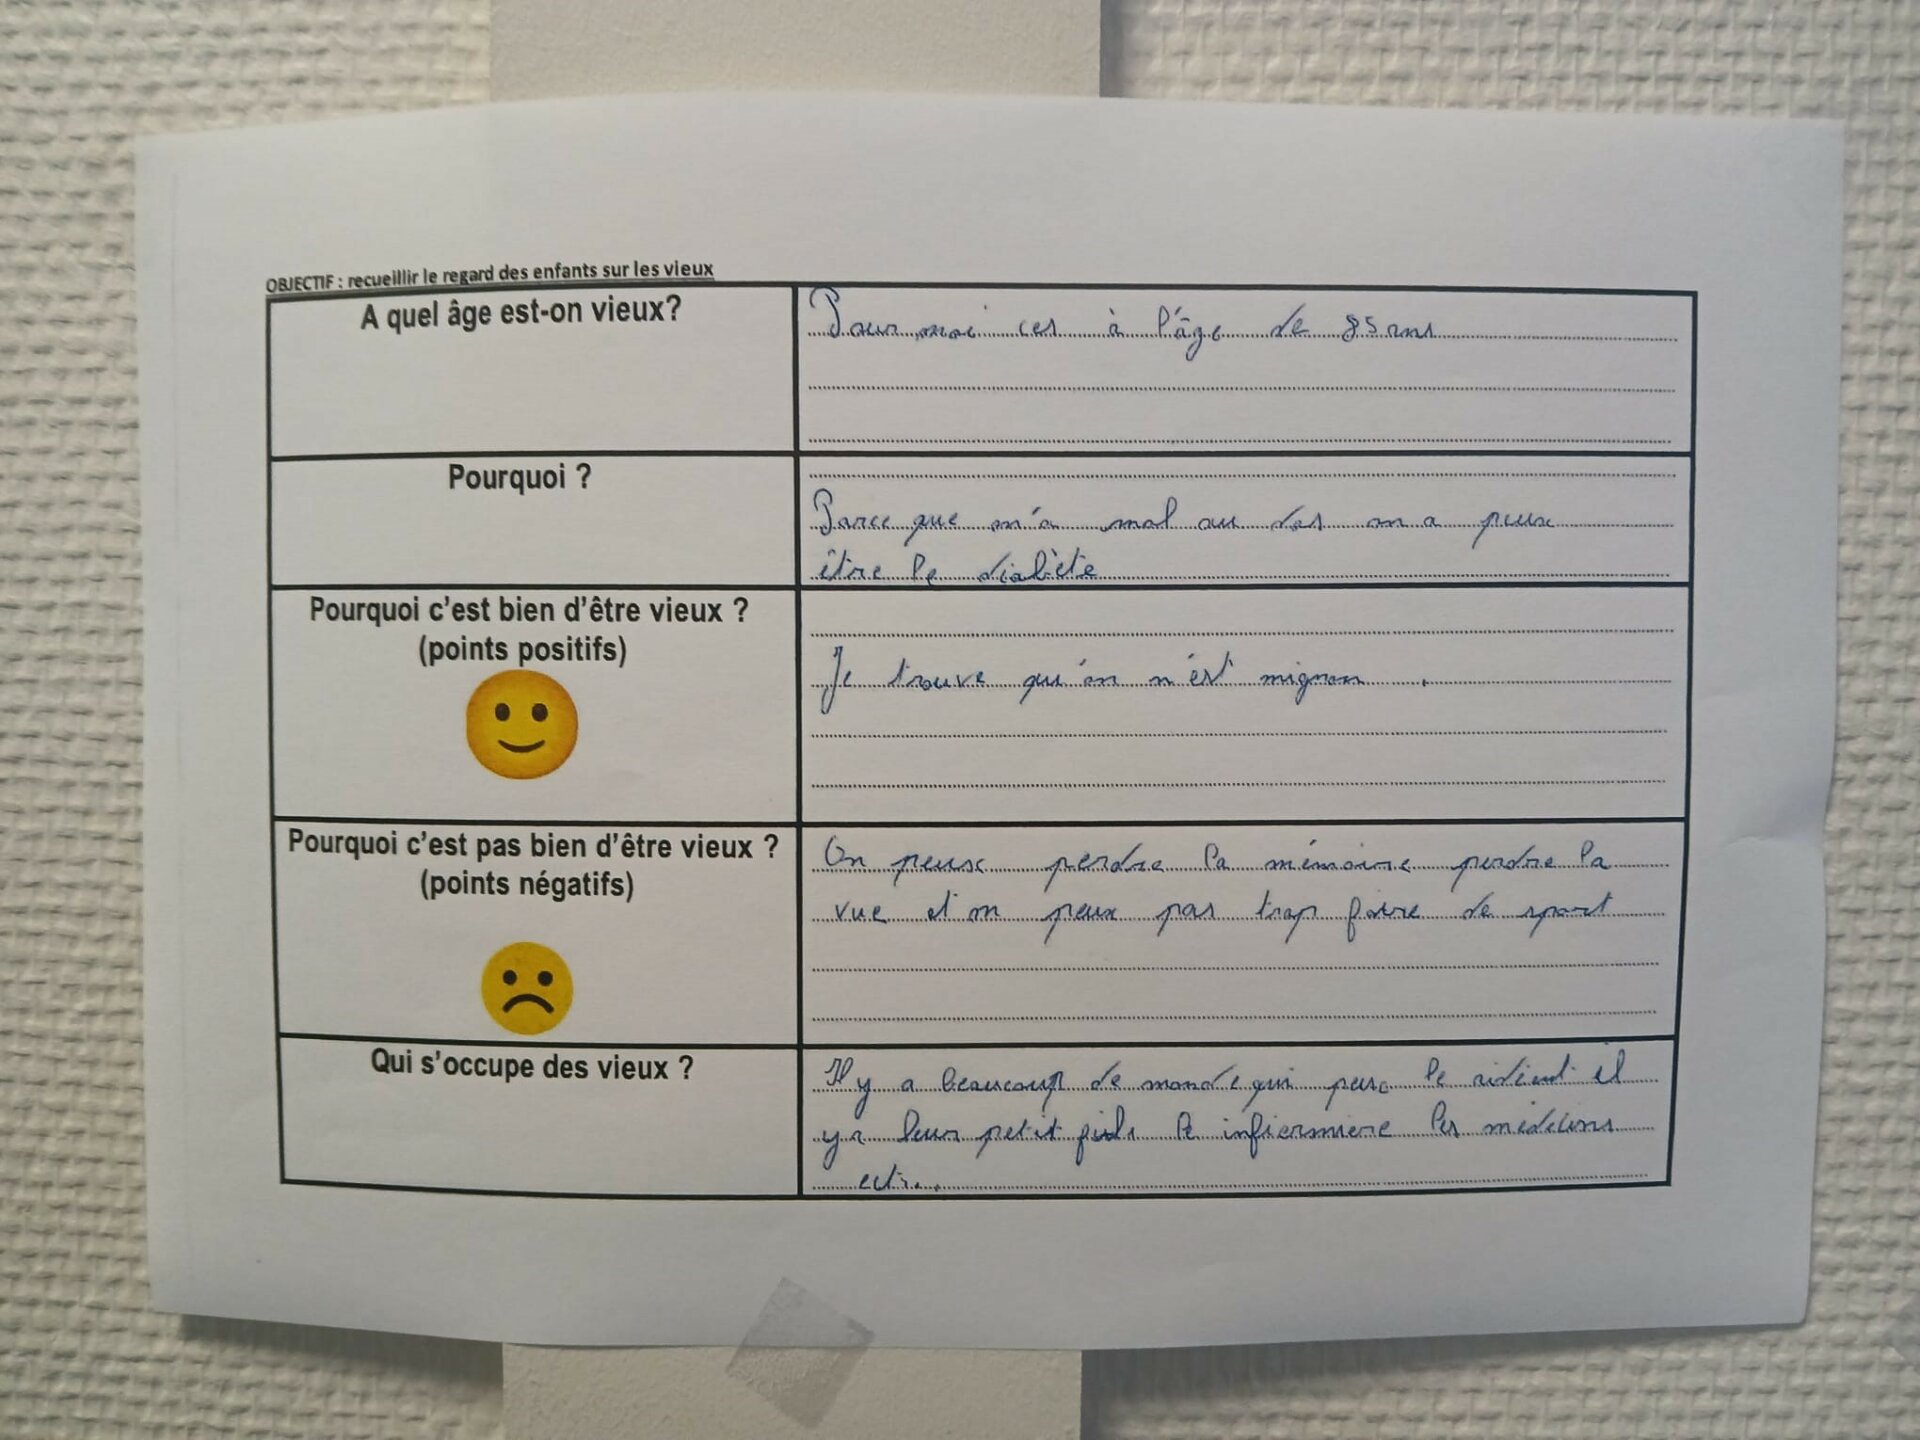 OBJECTIF : recueillir le regard des enfants sur les vieux
A quel âge est-on vieux?
Pour moi ces à l'âge de 85 ans
Pourquoi ?
Parce que on n'a mal au dos on a peux
être le diabète
Pourquoi c'est bien d'être vieux ?
(points positifs)
Je trouve qu'on n'est mignon .
Pourquoi c'est pas bien d'être vieux ?
(points négatifs)
On peux perdre la mémoire perdre la
vue et on peux pas trop faire de sport
Qui s'occupe des vieux ?
Il y a beaucoup de monde qui peux le il
y a leur petit le infiermiere les médecins
ect...